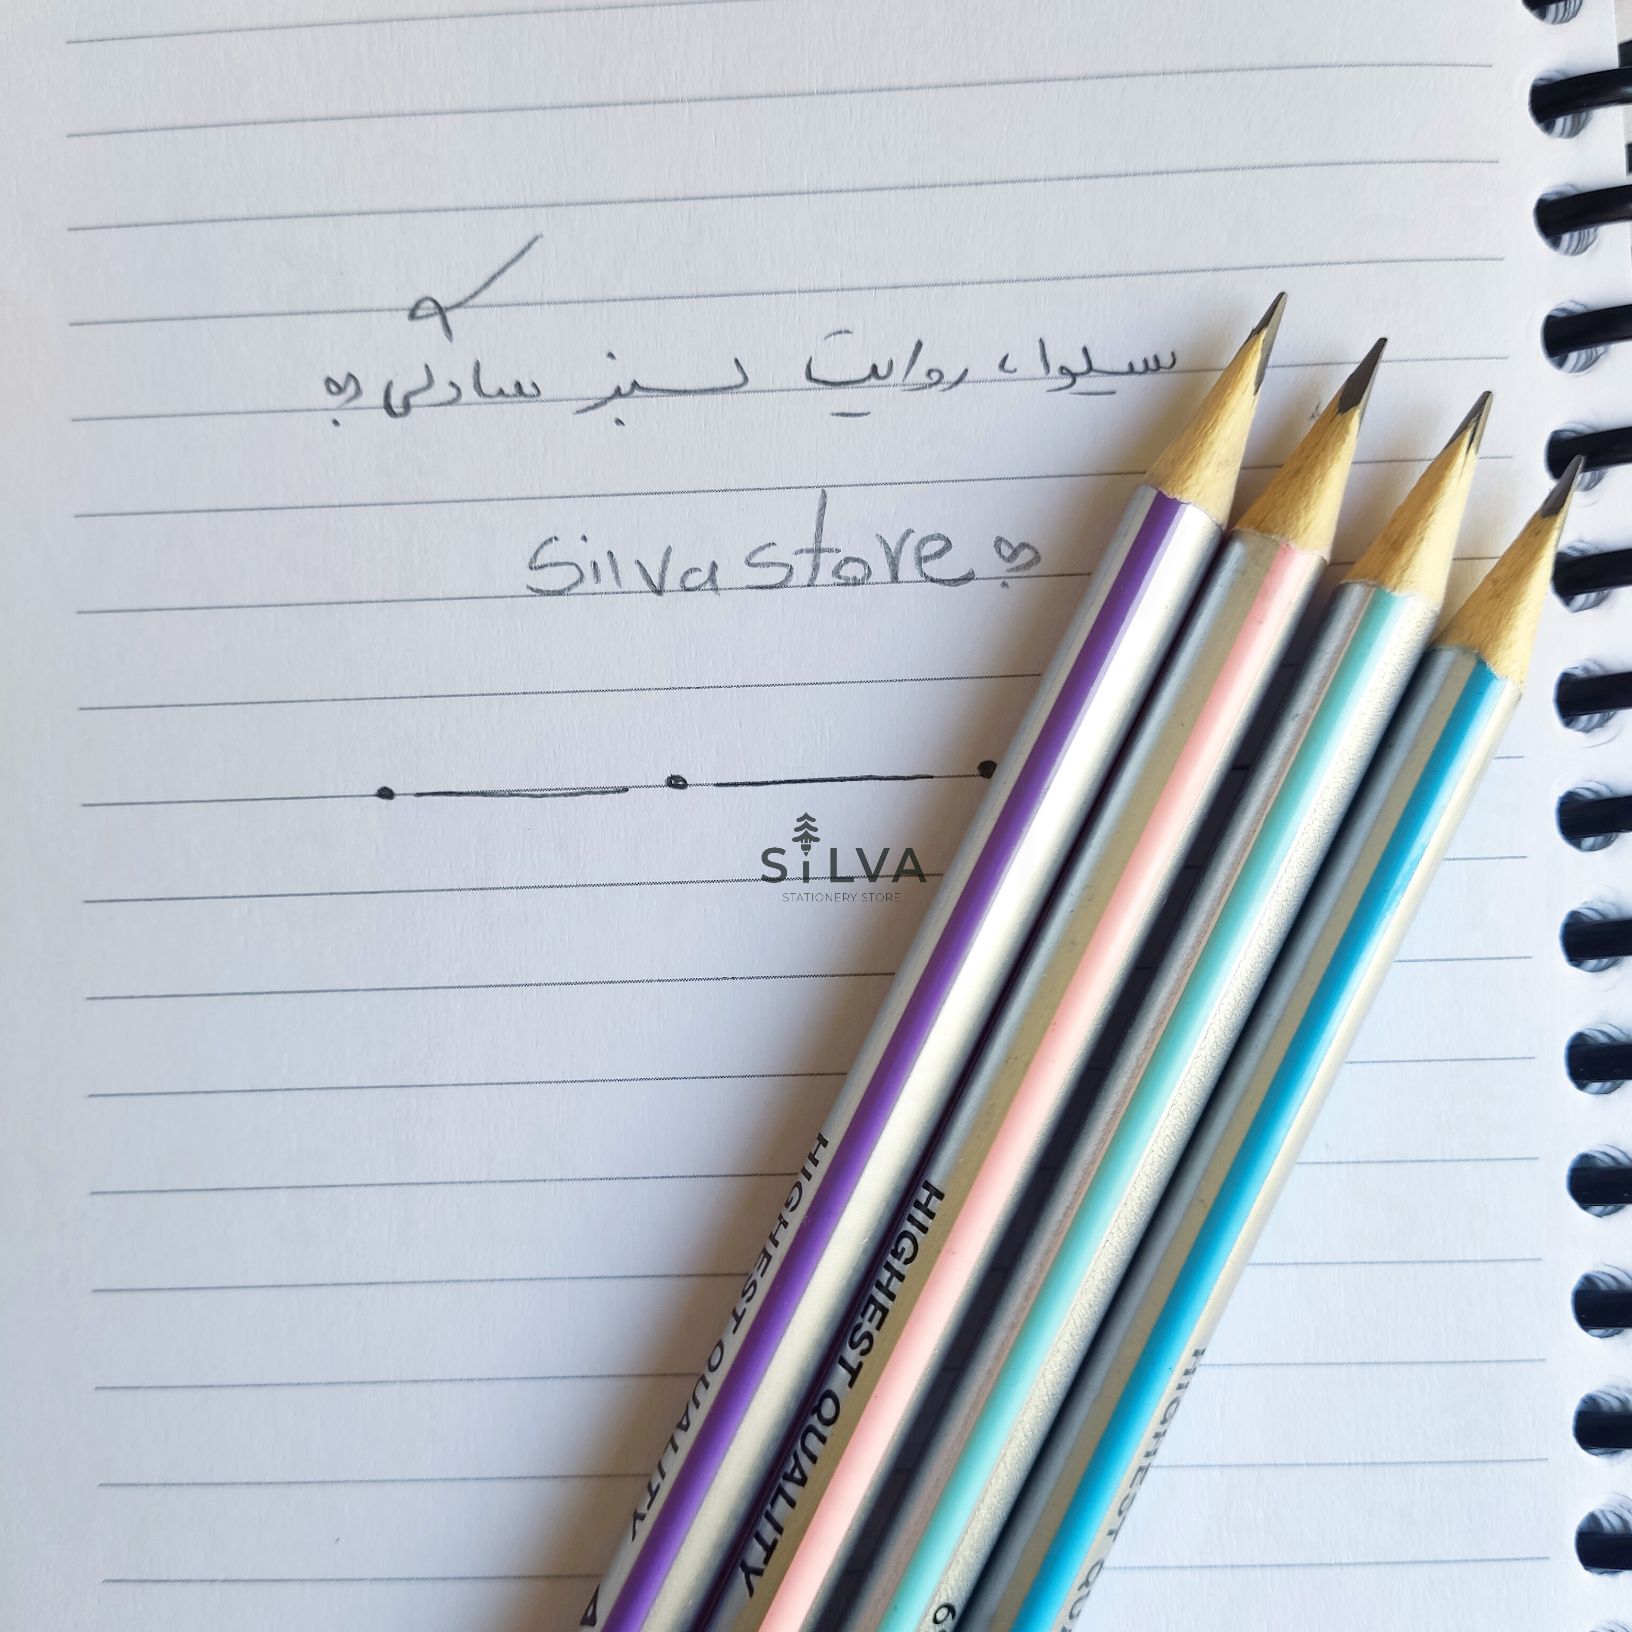 سیلوا، روایت سبز سادگی
silva store
SiLVA
STATIONERY STORE
HIGHEST QUALITY
HIGHEST QUALITY
HIGHEST QU